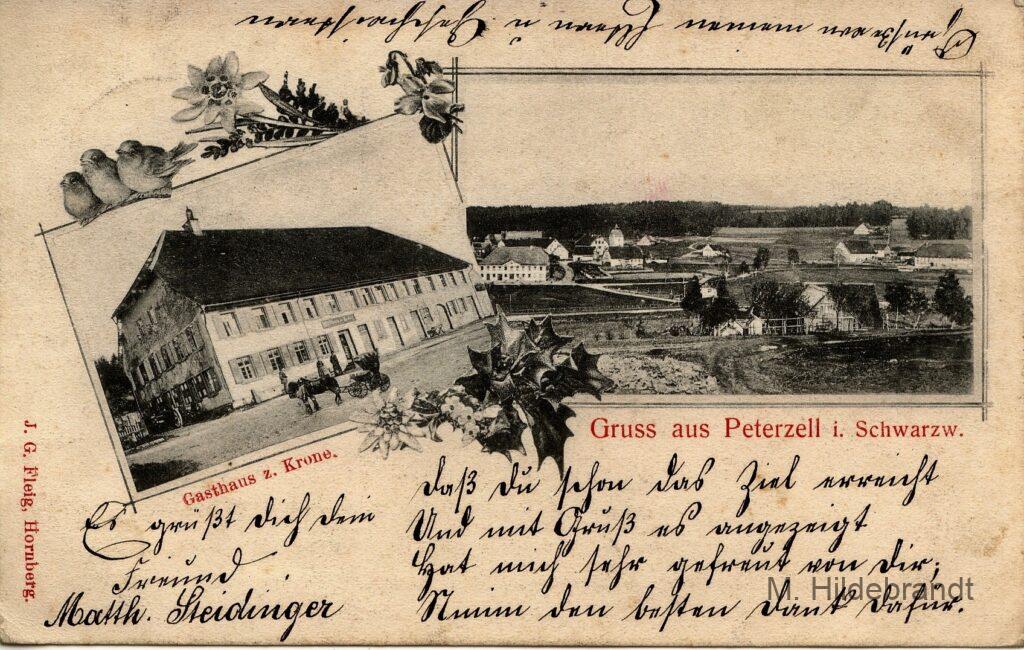 Grüße an meinen Husar u. Geschwistern
Gasthaus z. Krone.
Gruss aus Peterzell i. Schwarzw.
J. G. Fleig, Hornberg.
Es grüßt dich dein
Freund
Matth. Steidinger
daß du schon das Ziel erreicht
Und mit Gruß es angezeigt
Hat mich sehr gefreut von dir;
Nimm den besten Dank dafür.
M. Hildebrandt